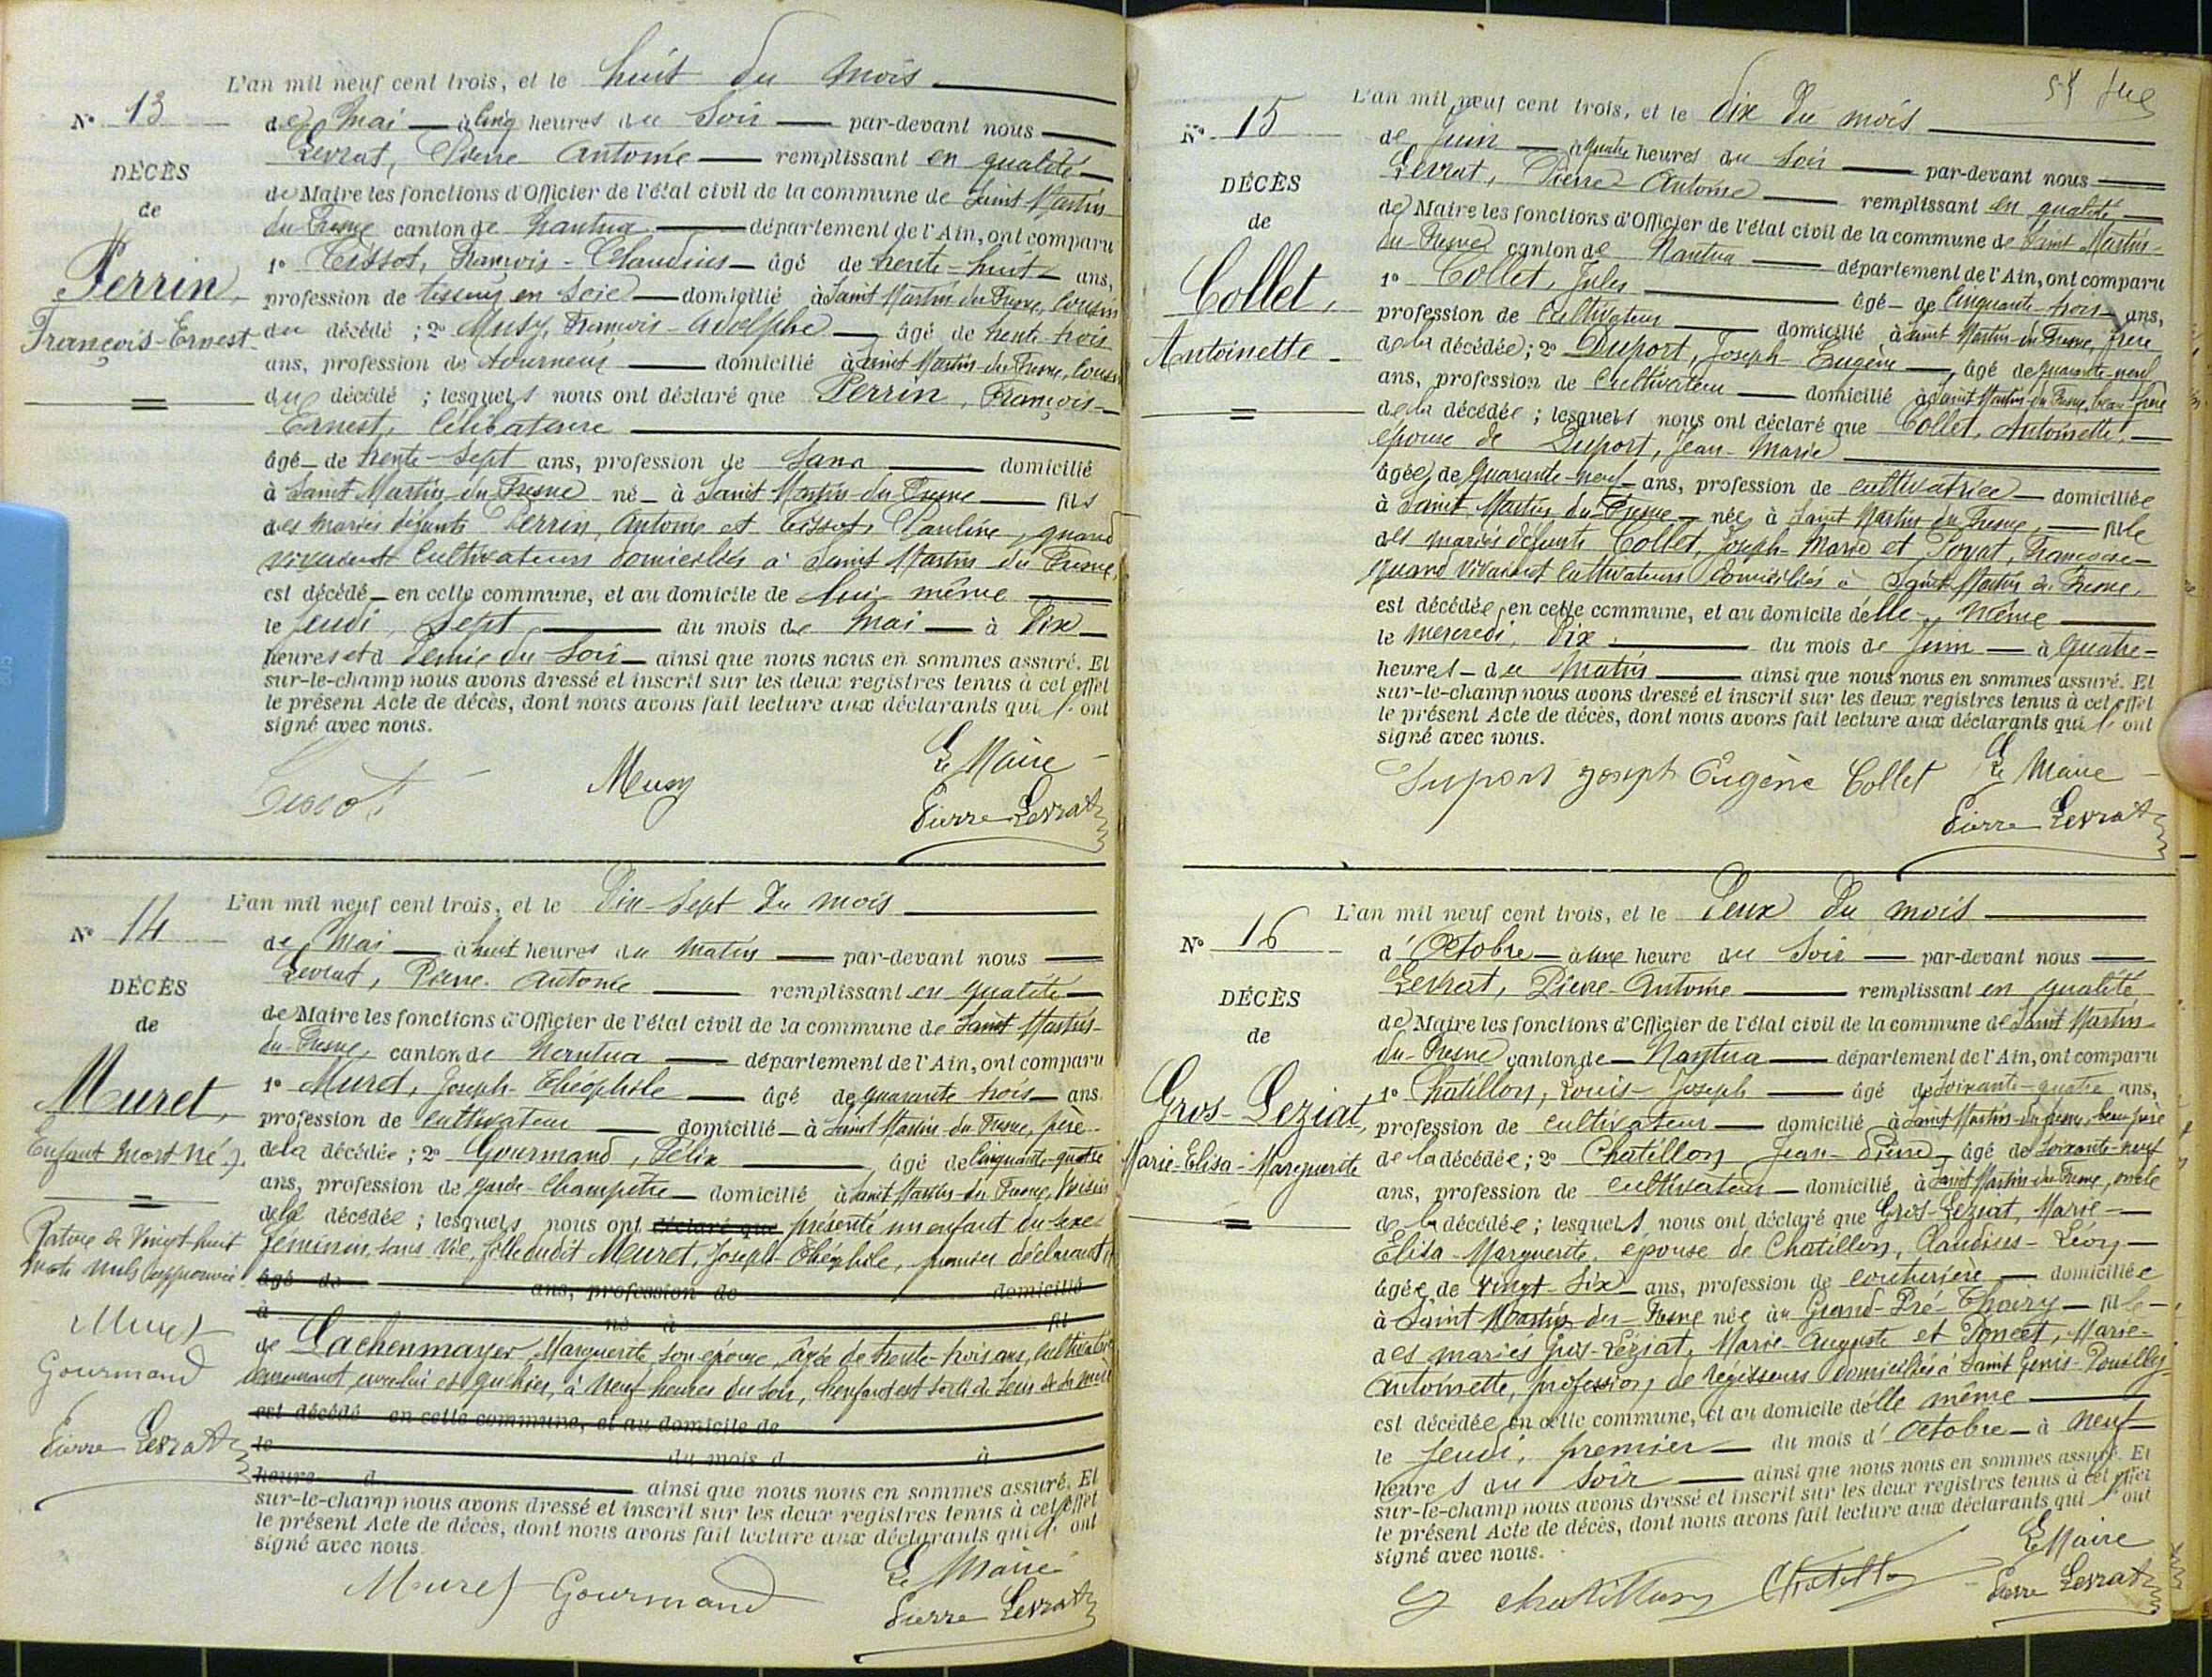 L'an mil neuf cent trois, et le huit du mois
N° 13
de Mai à cinq heures du soir par-devant nous
Levrat, Pierre Antoine remplissant en qualité
DÉCÈS
de Maire les fonctions d'Officier de l'état civil de la commune de Saint Martin
de
du Fresne canton de Nantua département de l'Ain, ont comparu
Perrin,
1° Tissot, François-Claudius âgé de trente-huit ans,
profession de tisseur en soie domicilié à Saint Martin du Fresne, cousin
François-Ernest
du décédé ; 2° Musy, François-Adolphe âgé de trente trois
ans, profession de tourneur domicilié à Saint Martin-du-Fresne, cousin
du décédé ; lesquels nous ont déclaré que Perrin, François-
Ernest, Célibataire
âgé de trente-sept ans, profession de sans domicilié
à Saint Martin-du-Fresne né à Saint Martin-du-Fresne fils
des mariés défunts Perrin, Antoine et Tissot, Pauline, quand
vivaient cultivateurs domiciliés à Saint Martin-du-Fresne,
est décédé en cette commune, et au domicile de lui-même
le Jeudi, Sept du mois de Mai à Dix
heures et demie du soir ainsi que nous nous en sommes assuré. Et
sur-le-champ nous avons dressé et inscrit sur les deux registres tenus à cet effet
le présent Acte de décès, dont nous avons fait lecture aux déclarants qui l'ont
signé avec nous.
Tissot
Musy
Le Maire
Pierre Levrat
L'an mil neuf cent trois, et le Dix-Sept du mois
N° 14
de Mai à huit heures du matin par-devant nous
Levrat, Pierre-Antoine remplissant en qualité
DÉCÈS
de Maire les fonctions d'Officier de l'état civil de la commune de Saint Martin-
de
du-Fresne canton de Nantua département de l'Ain, ont comparu
Muret,
1° Muret, Joseph-Théophile âgé de quarante trois ans
profession de cultivateur domicilié à Saint Martin-du-Fresne, père
Enfant mort-né
de la décédée ; 2° Gourmand, Félix âgé de Cinquante-quatre
ans, profession de garde-champêtre domicilié à Saint Martin-du-Fresne, Voisin
de la décédée ; lesquels nous ont déclaré que présenté un enfant du sexe
Rature de vingt-huit
féminin, sans vie, fille dudit Muret, Joseph-Théophile, premier déclarant
mots nuls approuvée
âgé de ans, profession de domicilié
à né à fil
Muret
de Lachenmayer, Marguerite, son épouse, âgée de trente-trois ans, cultivatrice
Gourmand
demeurant avec lui et qu'hier, à neuf heures du soir, l'enfant est sorti du sein de sa mère
est décédé en cette commune, et au domicile de
Pierre Levrat
le du mois d à
heure d ainsi que nous nous en sommes assuré. Et
sur-le-champ nous avons dressé et inscrit sur les deux registres tenus à cet effet
le présent Acte de décès, dont nous avons fait lecture aux déclarants qui l'ont
signé avec nous.
Muret Gourmand
Le Maire
Pierre Levrat
L'an mil neuf cent trois, et le Dix du mois
N° 15
de Juin à quatre heures du soir par-devant nous
Levrat, Pierre Antoine remplissant en qualité
DÉCÈS
de Maire les fonctions d'Officier de l'état civil de la commune de Saint Martin-
de
du-Fresne canton de Nantua département de l'Ain, ont comparu
Collet,
1° Collet, Jules âgé de Cinquante-trois ans,
profession de Cultivateur domicilié à Saint Martin-du-Fresne, frère
Antoinette
de la décédée ; 2° Duport, Joseph-Eugène âgé de quarante-neuf
ans, profession de cultivateur domicilié à Saint Martin-du-Fresne, beau-frère
de la décédée ; lesquels nous ont déclaré que Collet, Antoinette,
épouse de Duport, Jean-Marie
âgée de quarante-neuf ans, profession de cultivatrice domiciliée
à Saint Martin-du-Fresne née à Saint Martin du Fresne, fille
des mariés défunts Collet, Joseph-Marie et Poyat, Françoise
quand vivaient cultivateurs domiciliés à Saint-Martin du Fresne,
est décédée en cette commune, et au domicile d'elle-même
le Mercredi, Dix du mois de Juin à quatre
heures du matin ainsi que nous nous en sommes assuré. Et
sur-le-champ nous avons dressé et inscrit sur les deux registres tenus à cet effet
le présent Acte de décès, dont nous avons fait lecture aux déclarants qui l'ont
signé avec nous.
Duport Joseph Eugène Collet
Le Maire
Pierre Levrat
L'an mil neuf cent trois, et le Deux du mois
N° 16
d'Octobre à une heure du soir par-devant nous
Levrat, Pierre-Antoine remplissant en qualité
DÉCÈS
de Maire les fonctions d'Officier de l'état civil de la commune de Saint Martin
de
du-Fresne canton de Nantua département de l'Ain, ont comparu
Gros-Leziat,
1° Chatillon, Louis-Joseph âgé de soixante-quatre ans,
profession de cultivateur domicilié à Saint Martin-du-Fresne, beau-père
Marie-Elisa-Marguerite
de la décédée ; 2° Chatillon Jean-Pierre âgé de soixante-neuf
ans, profession de cultivateur domicilié à Saint Martin-du-Fresne, oncle
de la décédée ; lesquels nous ont déclaré que Gros-Leziat, Marie-
Elisa-Marguerite, épouse de Chatillon, Claudius-Léon
âgée de vingt-six ans, profession de couturière domiciliée
à Saint Martin-du-Fresne née au Grand-Pré-Thoiry fille
des mariés Gros-Léziat, Marie-Auguste et Poncet, Marie-
Antoinette, profession de régisseurs domiciliés à Saint Genis-Pouilly
est décédée en cette commune, et au domicile d'elle même
le Jeudi, premier du mois d'Octobre à neuf
heures du soir ainsi que nous nous en sommes assuré. Et
sur-le-champ nous avons dressé et inscrit sur les deux registres tenus à cet effet
le présent Acte de décès, dont nous avons fait lecture aux déclarants qui l'ont
signé avec nous.
Chatillon Chatillon
Le Maire
Pierre Levrat